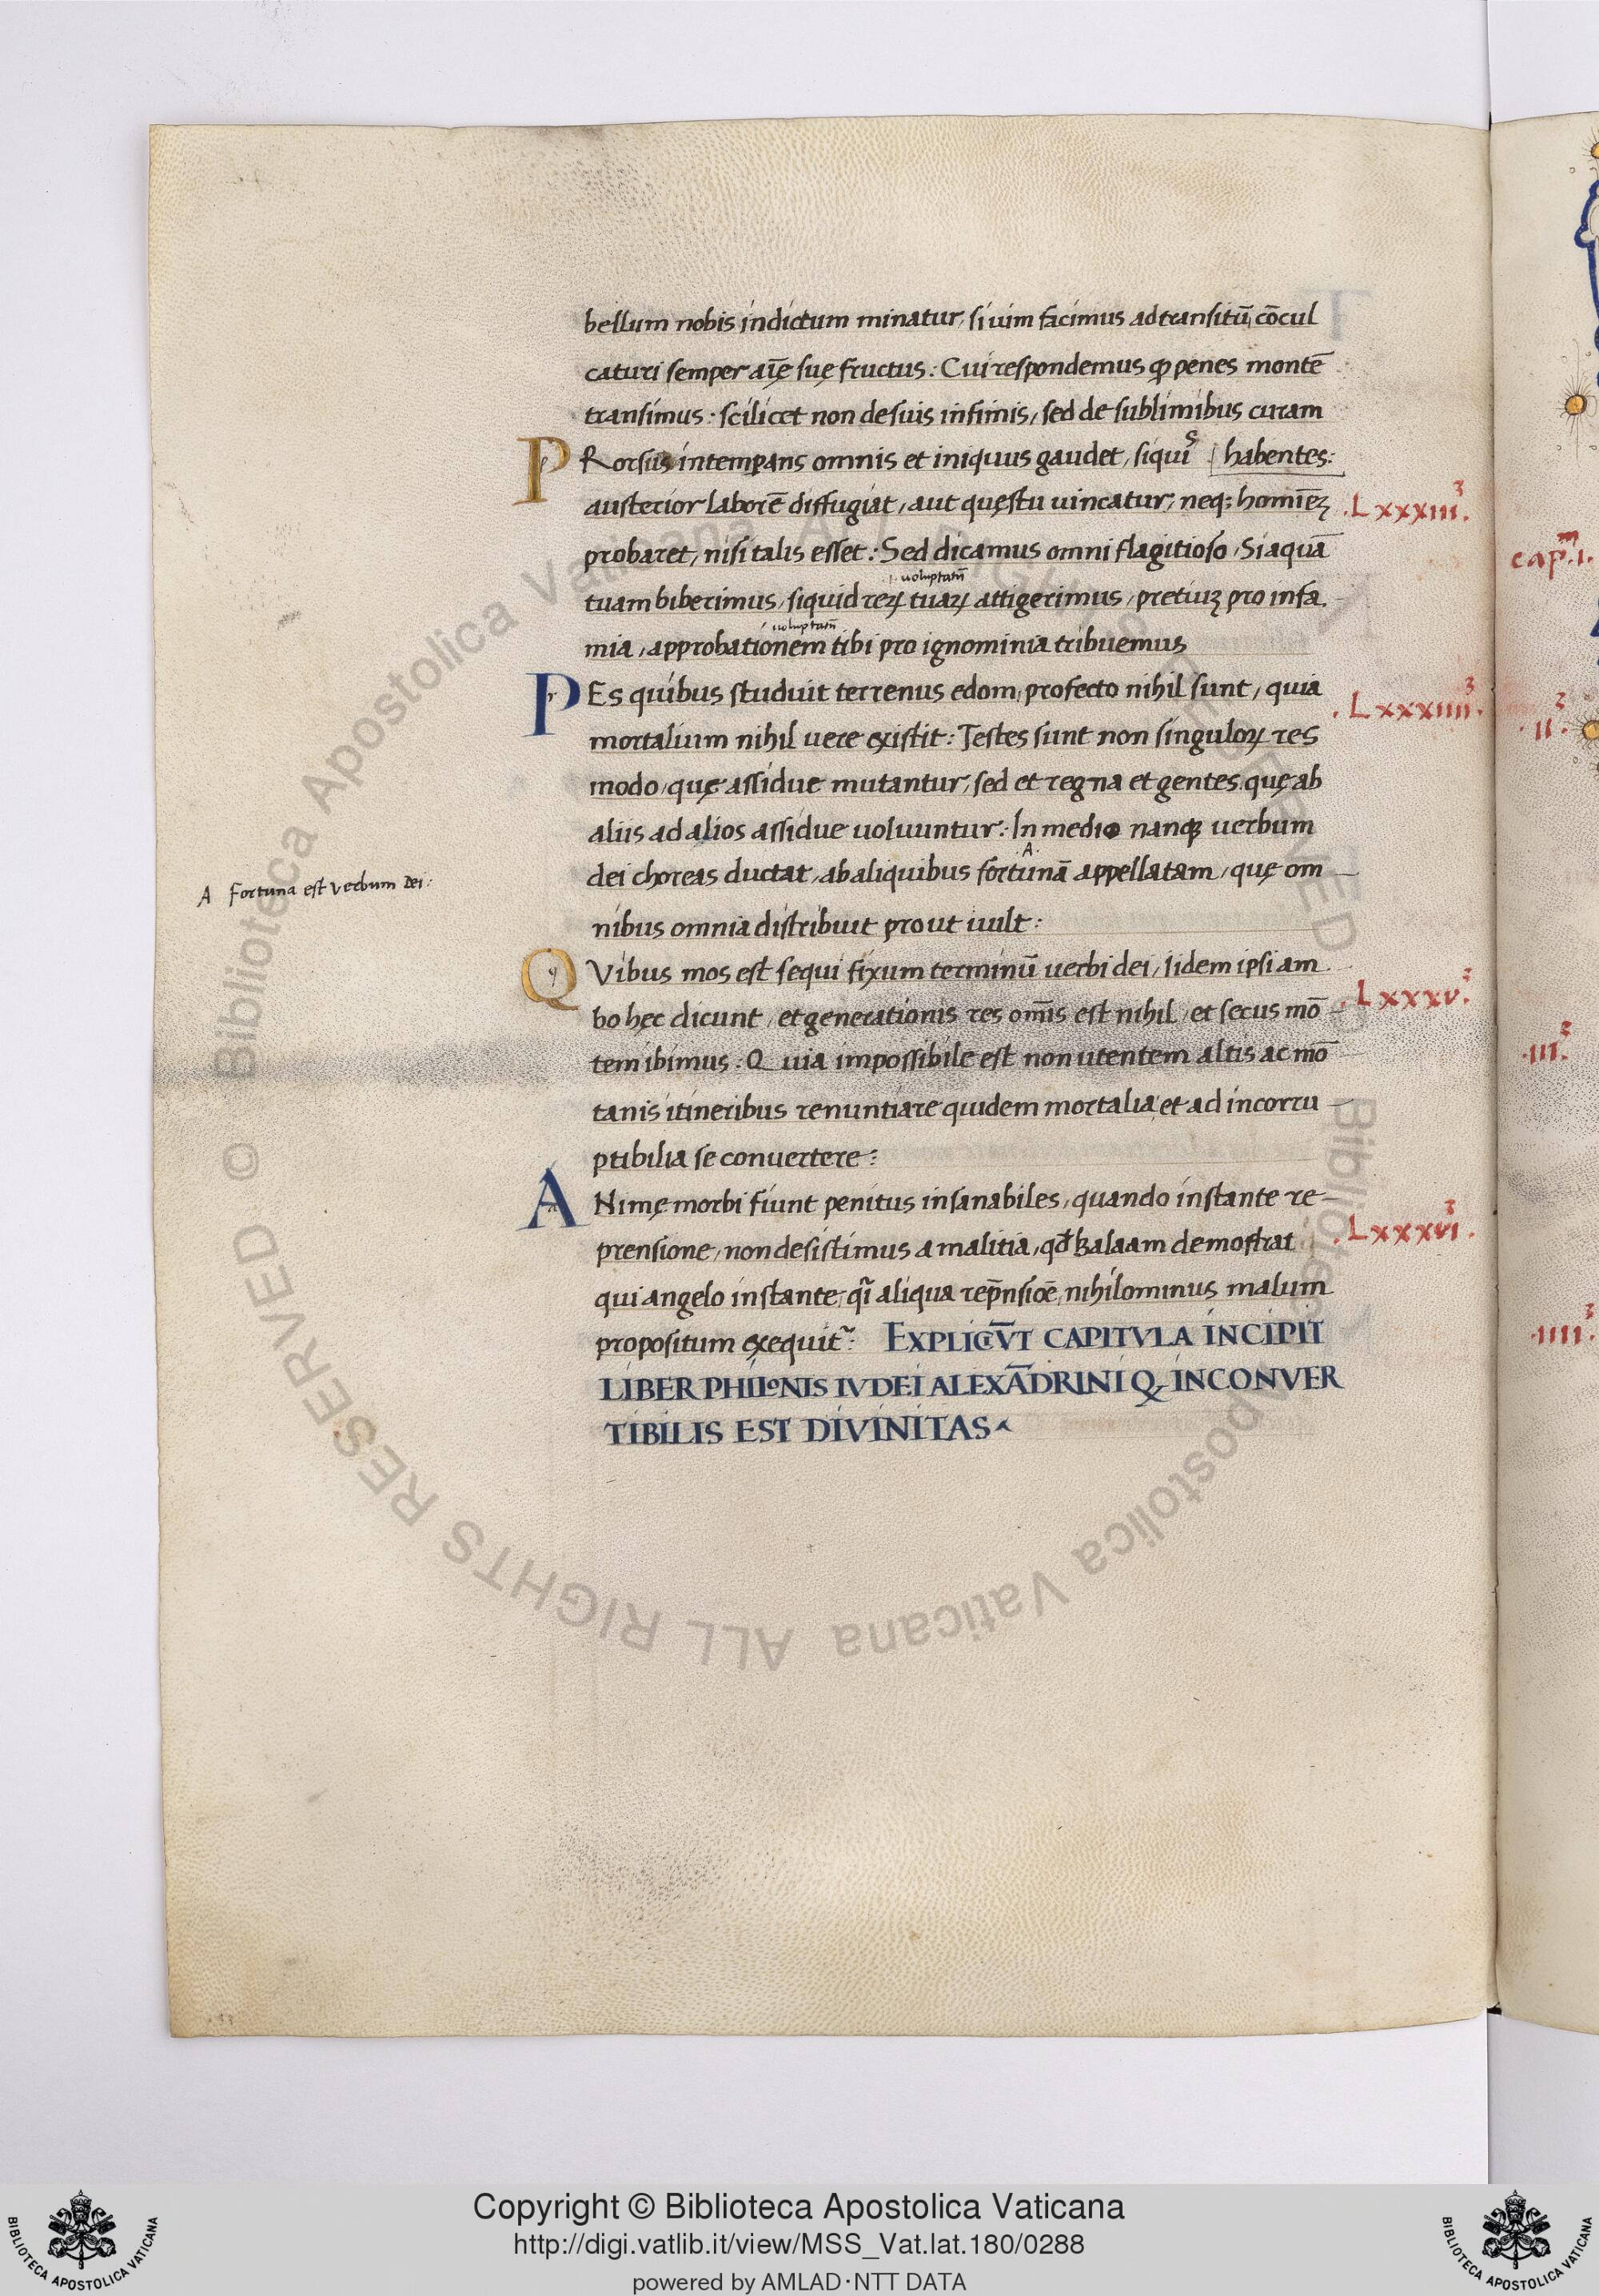 bellum nobis indictum minatur, si uim facimus ad transitū, cōcul
caturi semper aīę suę fructus: Cui respondemus ꝙ penes montē
transimus: scilicet non de suis infimis, sed de sublimibus curam
habentes:
PRorsus intemꝑans omnis et iniquus gaudet, siquis
austerior laborē diffugiat, aut quęstu uincatur, neq; homiēȝ
.Lxxxiii.
probaret, nisi talis esset: Sed dicamus omni flagitioso, Si aquā
.i. uoluptatū
tuam biberimus, siquid reꝝ tuaꝝ attigerimus, pretiuȝ pro infa
uoluptatū
mia, approbationem tibi pro ignominia tribuemus
PEs quibus studuit terrenus edom, profecto nihil sunt, quia
.Lxxxiiii.
mortalium nihil uere existit: Testes sunt non singuloꝝ res
modo, quę assidue mutantur, sed et regna et gentes quę ab
aliis ad alios assidue uoluuntur: In medio nanqȝ uerbum
A
dei choreas ductat, ab aliquibus fortunā appellatam, quę om
A Fortuna est verbum dei:
nibus omnia distribuit prout uult:
QVibus mos est sequi fixum terminū uerbi dei, Iidem ipsi am
.Lxxxv.
bo hęc dicunt, et generationis res om̄is est nihil, et secus mō
tem ibimus: Quia impossibile est non utentem altis ac mō
tanis itineribus renuntiare quidem mortalia, et ad incorru
ptibilia se conuertere:
ANimę morbi fiunt penitus insanabiles, quando instante re
.Lxxxvi.
prensione, non desistimus a malitia, qđ Balaam demostrat
qui angelo instante, qī aliqua rep̄nsiōe, nihilominus malum
propositum exequit~: EXPLICIŪT CAPITVLA INCIPIT
LIBER PHILONIS IVDEI ALEXĀDRINI Q INCONVER
TIBILIS EST DIVINITAS
cap.m i.
.ii.
.iii.
.iiii.
© Biblioteca Apostolica Vaticana ALL RIGHTS RESERVED © Biblioteca Apostolica Vaticana ALL RIGHTS RESERVED
Copyright © Biblioteca Apostolica Vaticana
http://digi.vatlib.it/view/MSS_Vat.lat.180/0288
powered by AMLAD·NTT DATA
BIBLIOTECA APOSTOLICA VATICANA
BIBLIOTECA APOSTOLICA VATICANA